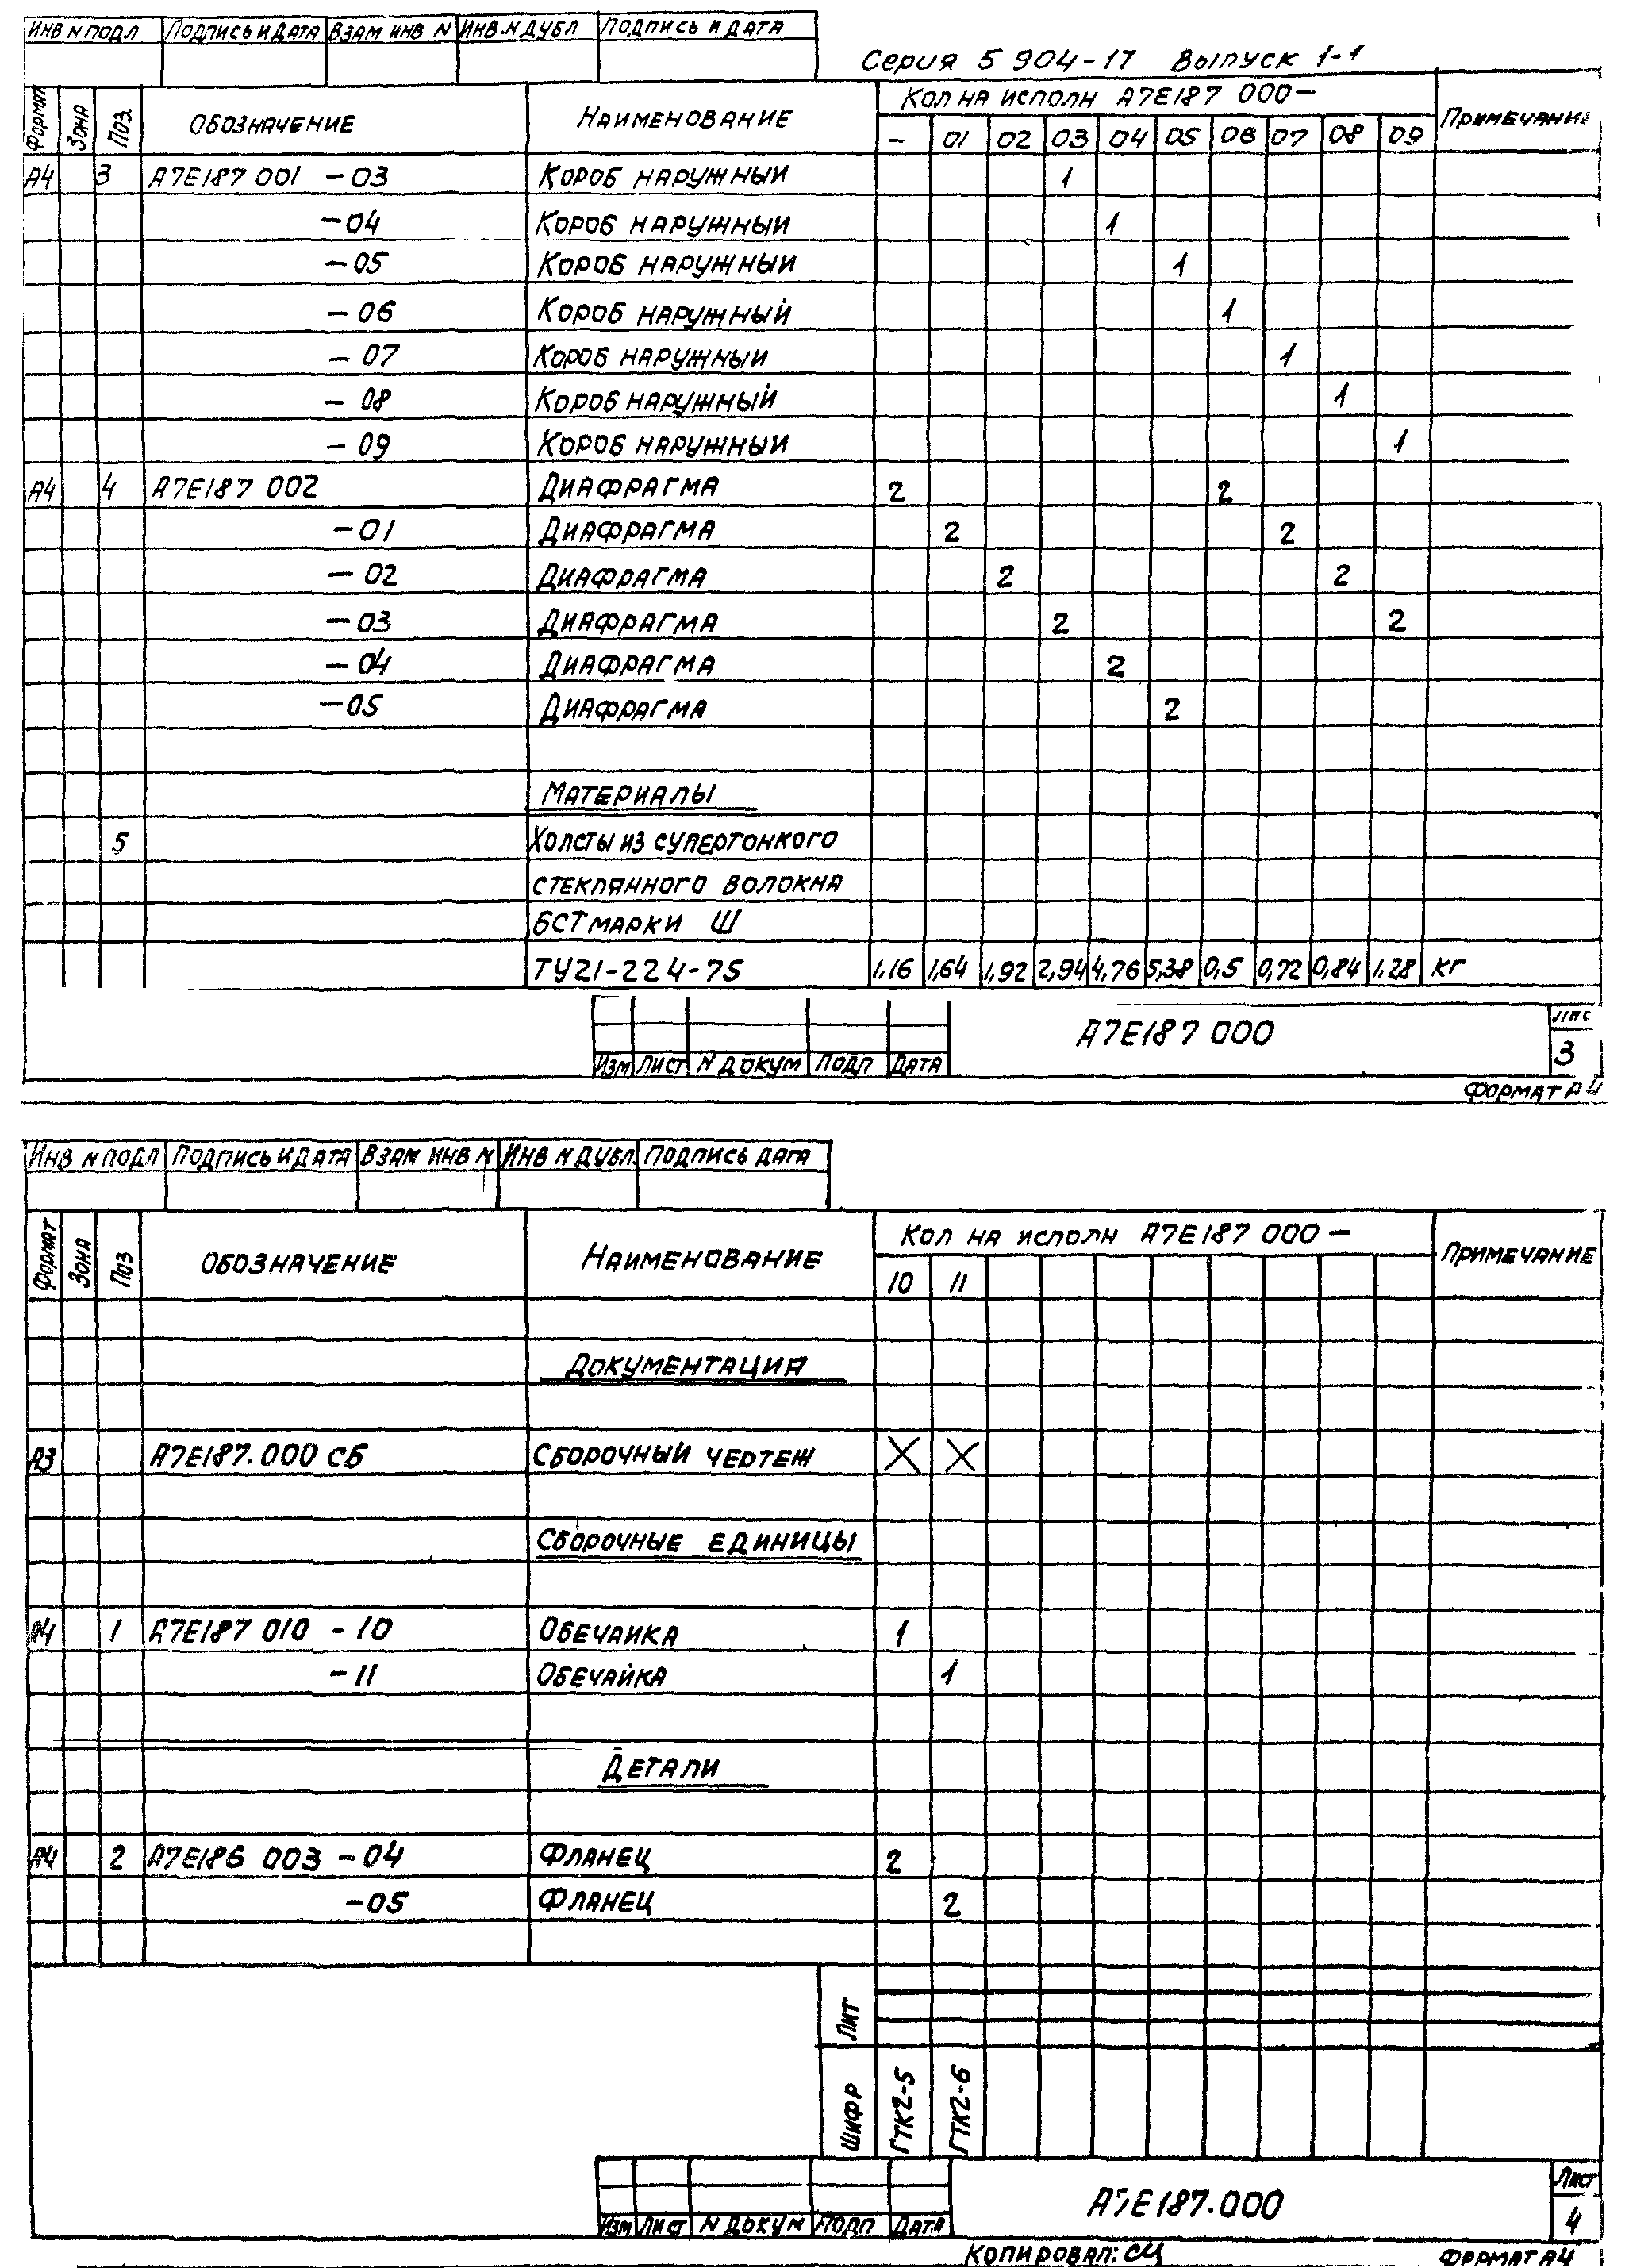 Инв N подл Подпись и дата Взам инв N Инв. N дубл Подпись и дата
Серия 5 904-17 Выпуск 1-1
Формат Зона Поз. Обозначение Наименование Кол на исполн А7Е187 000- Примечание
- 01 02 03 04 05 06 07 08 09
А4 3 А7Е187 001 -03 Короб наружный 1
-04 Короб наружный 1
-05 Короб наружный 1
-06 Короб наружный 1
-07 Короб наружный 1
-08 Короб наружный 1
-09 Короб наружный 1
А4 4 А7Е187 002 Диафрагма 2 2
-01 Диафрагма 2 2
-02 Диафрагма 2 2
-03 Диафрагма 2 2
-04 Диафрагма 2
-05 Диафрагма 2
Материалы
5 Холсты из супертонкого
стеклянного волокна
БСТ марки Ш
ТУ21-224-75 1,16 1,64 1,92 2,94 4,76 5,38 0,5 0,72 0,84 1.28 кг
А7Е187 000 Лис
3
Изм Лист N докум Подп Дата
Формат А4
Инв N подл Подпись и дата Взам инв N Инв N дубл. Подпись дата
Формат Зона Поз Обозначение Наименование Кол на исполн А7Е187 000- Примечание
10 11
Документация
А3 А7Е187.000 СБ Сборочный чертеж X X
Сборочные единицы
А4 1 А7Е187 010 -10 Обечаика 1
-11 Обечайка 1
Детали
А4 2 А7Е186 003 -04 Фланец 2
-05 Фланец 2
Лит
Шифр ГТК2-5 ГТК2-6
А7Е187.000 Лист
4
Изм Лист N докум Подп Дата
Копировал: СЦ Формат А4